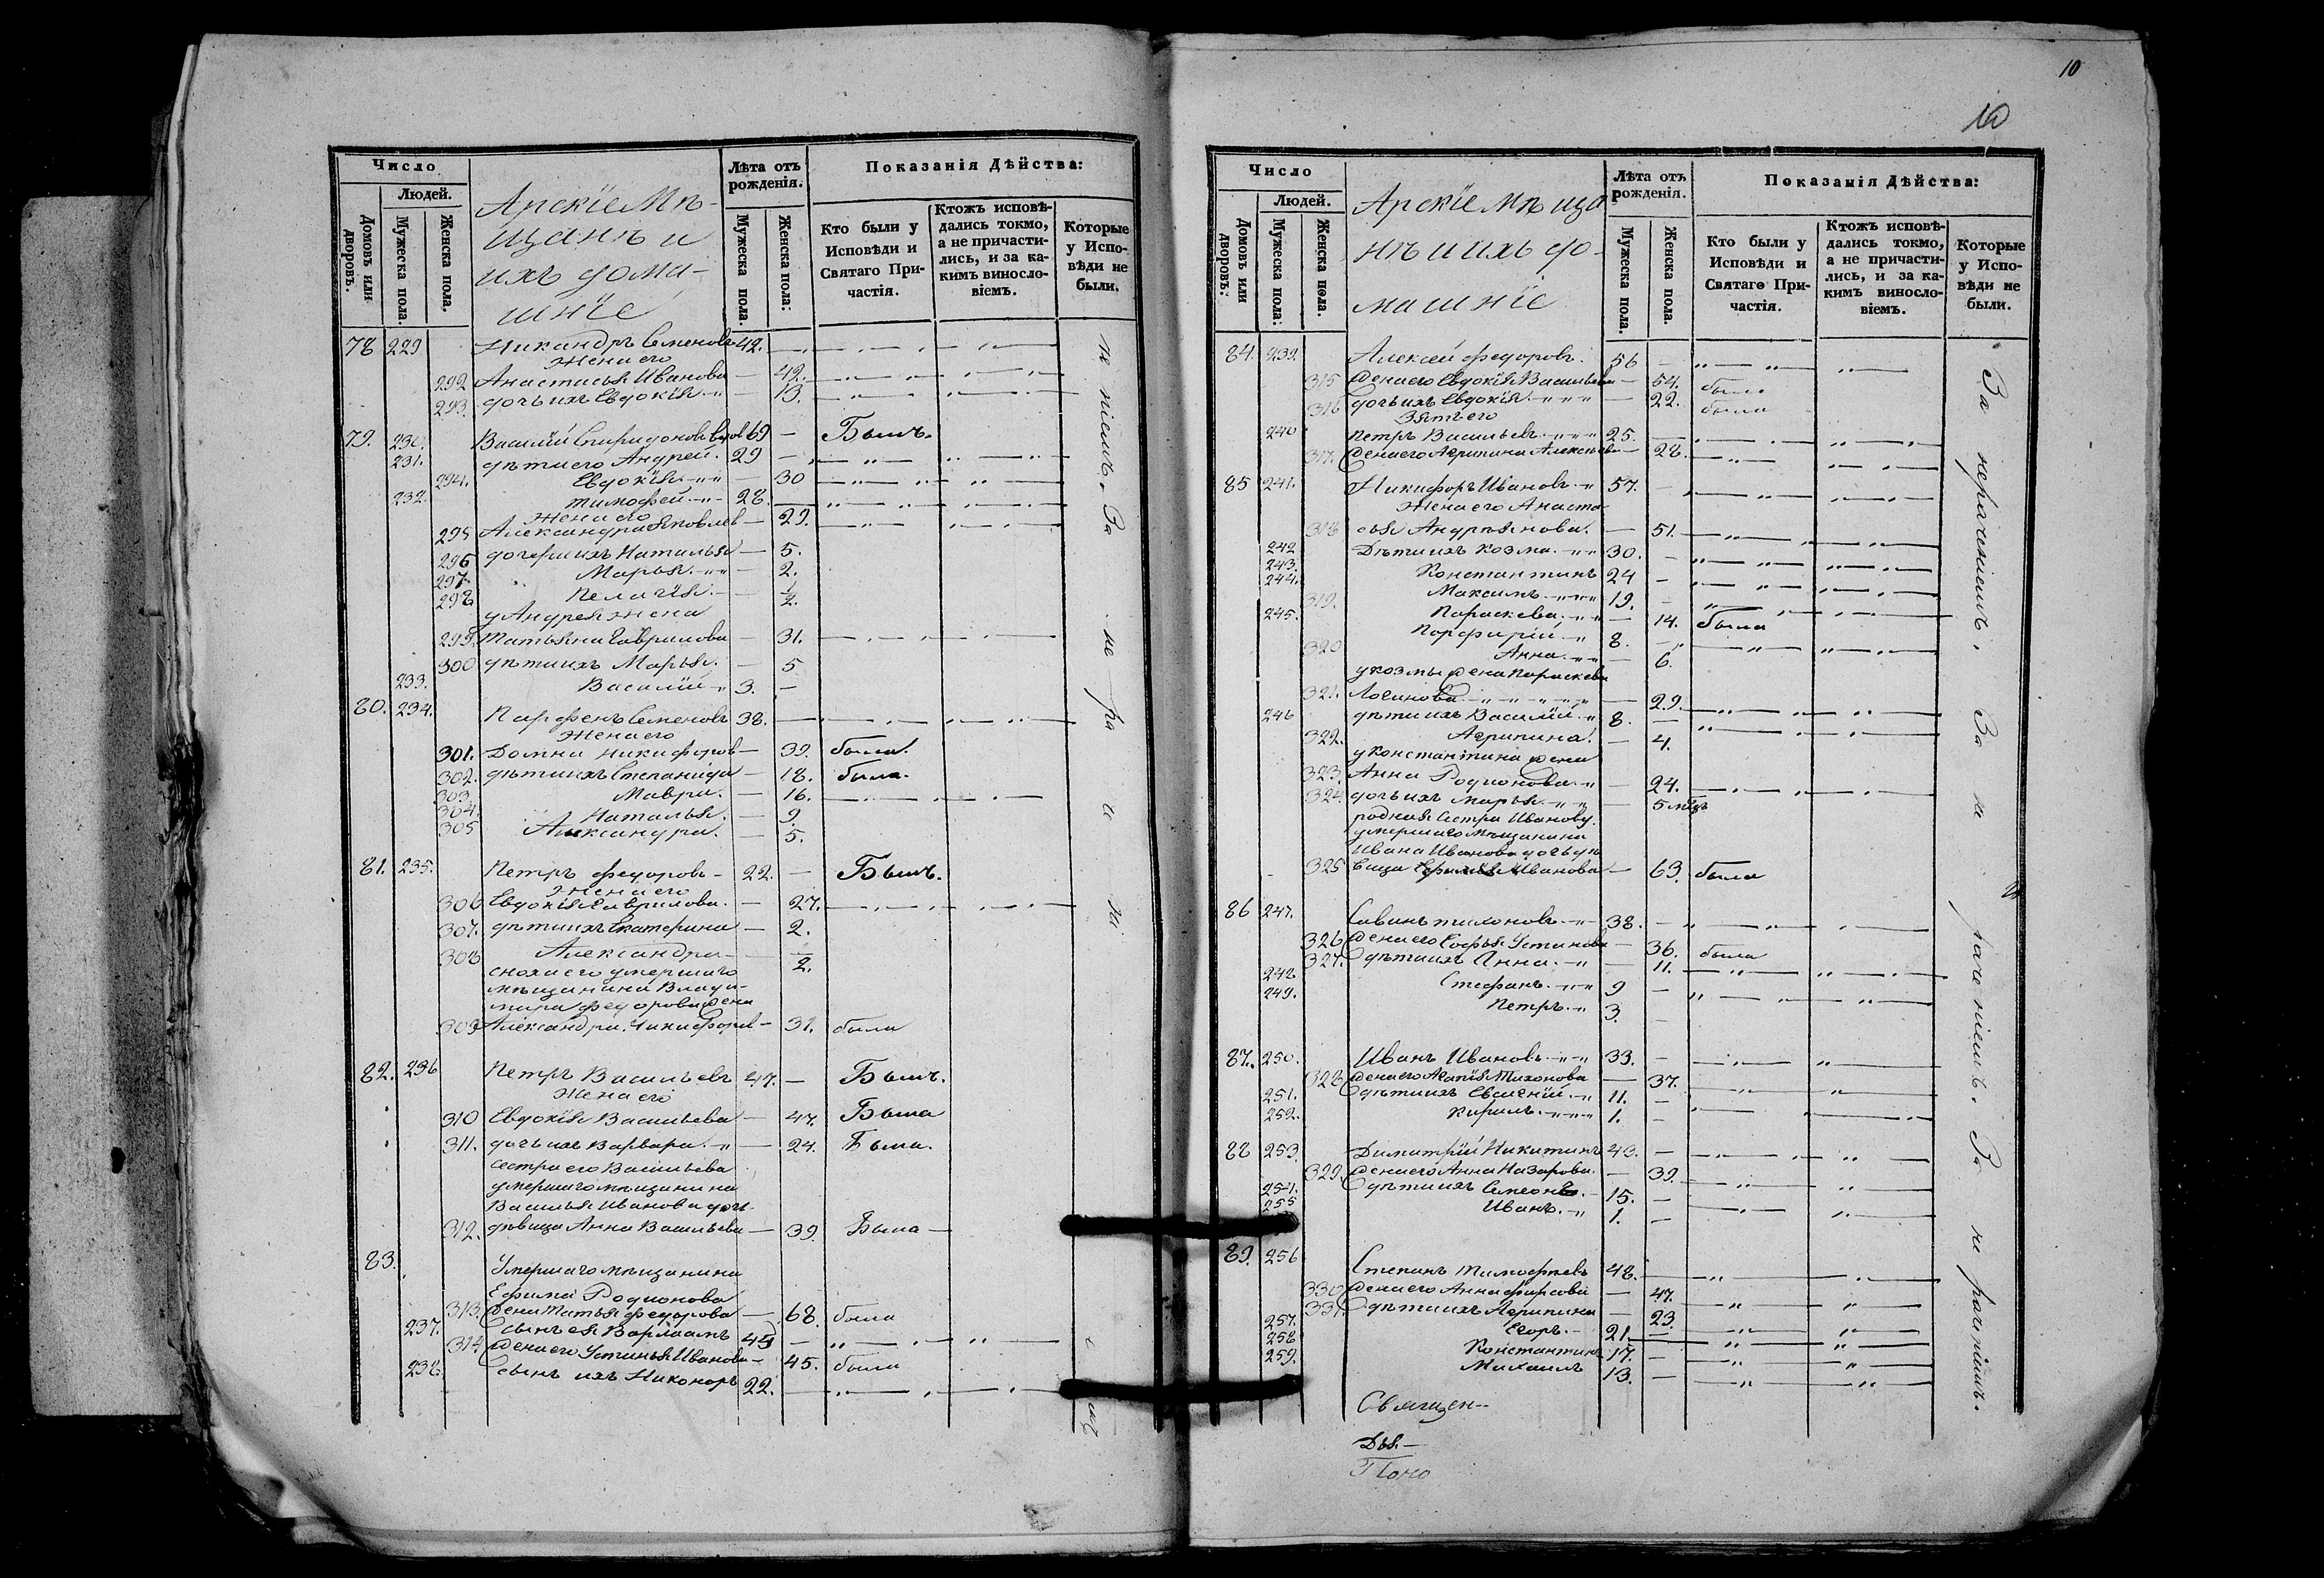 Число
Людей.
Домовъ или дворовъ.
Мужеска пола.
Женска пола.
Арскіе Мѣ-
щанѣ и
ихъ дома-
шніе
Лѣта отъ рожденія.
Мужеска пола.
Женска пола:
Показанія Дѣйства:
Кто были у Исповѣди и Святаго При-частія.
Ктожъ исповѣ-дались токмо, а не причасти-лись, и за ка-кимъ виносло-віемъ.
Которые у Испо-вѣди не были.
78 229 Никандръ Семеновъ 42. —
Жена его
292 Анастасья Иванова — 42.
293. дочь ихъ Евдокія — 13.
79. 230. Василий Спиридоновъ 69 — Былъ.
231. дѣти его Андрей. 29 —
294. Евдокія — 30
232. Тимофей 28. —
Жена его
295 Александра Яковлев — 29.
296 дочери ихъ Наталья — 5.
297. Марья — 2.
298 Пелагія — 1/2.
у Андрея жена
299. Татьяна Гаврилова — 31.
300 дѣти ихъ Марья. — 5
233. Василій 3. —
80. 234. Парфенъ Семеновъ 38. —
Жена его
301. Домна Никифоров — 39. была.
302. дѣти ихъ Степанида — 18. была.
303 Мавра. — 16.
304. Наталья. — 9.
305 Александра. — 5.
81. 235. Петръ Федоровъ 22. — Былъ.
Жена его
306 Евдокія Гаврилова. — 27.
307. дѣти ихъ Екатерина — 2.
308 Александра — 1/2.
сноха его умершаго
мѣщанина Влади-
мира Федорова жена
309 Александра Никифоров — 31. была
82. 236 Петръ Васильевъ 47. — Былъ.
Жена его
310 Евдокія Васильева — 47. Была
311. дочь ихъ Варвара — 24. Была.
сестра его Васильева
умершаго мѣщанина
Василья Иванова дочь
312. дѣвица Анна Васильева — 39. Была
83. Умершаго мѣщанина
Ефима Родионова
313. жена Татья Федорова — 68. была
237. сынъ ея Варлаамъ 45 —
314 жена его Устинья Иванова — 45. была
238. сынъ ихъ Никоноръ 22. —
10
10
Число
Людей.
Домовъ или дворовъ:
Мужеска пола:
Женска пола.
Арскіе Мѣща
нѣ и ихъ до-
машніе
Лѣта отъ рожденія.
Мужеска пола.
Женска пола.
Показанія Дѣйства:
Кто были у Исповѣди и Святаго При-частія.
Ктожъ исповѣ-дались токмо, а не причасти-лись, и за ка-кимъ виносло-віемъ.
Которые у Испо-вѣди не были.
84. 239 Алексей Федоровъ. 56 —
315 жена его Евдокія Васильева — 54. была
316 дочь ихъ Евдокія — 22. была
Зять его
240 Петръ Васильевъ 25. —
317. жена его Агрипина Алексѣева — 28.
85 241. Никифоръ Ивановъ 57. —
Жена его Анаста
318 сья Андрѣянова. — 51.
242 Дѣти ихъ Козма. 30. —
243. Константинъ 24 —
244. Максимъ 19. —
319. Параскева. — 14. была
245. Порфирій 8. —
320 Анна — 6.
у Козмы жена Параскева
321. Логинова — 29.
246 дѣти ихъ Василій 8. —
322. Агрипина. — 4.
у Константина жена
323. Анна Родионова — 24.
324. дочь ихъ Марья — 5 мѣц
родная сестра Иванову
умершаго мѣщанина
Ивана Иванова дочь дѣ
325 вица Ефимья Иванова — 63. была
86 247. Саванъ Тихоновъ 38. —
326 жена его Софья Устинова — 36. была
327. дѣти ихъ Анна. — 11.
248 Стефанъ 9 —
249. Петръ 3. —
87. 250. Иванъ Ивановъ 33. —
328 жена его Агапія Тихонова — 37.
251. дѣти ихъ Евгеній 11. —
252. Кирилъ 1. —
88 253. Димитрій Никитинъ 43. —
329. жена его Анна Назарова. — 39.
254. дѣти ихъ Симеонъ 15. —
255 Иванъ. 1. —
89. 256 Степанъ Тимофѣевъ 48.
330 жена его Анна Фирсова — 47.
331. дѣти ихъ Агрипина — 23.
257. Егоръ. 21. —
258 Константинъ 17. —
259. Михаилъ 13. —
За нерачениемъ. За не рачениемъ. За не рачениемъ.
Священ--
Дья.—
Поно